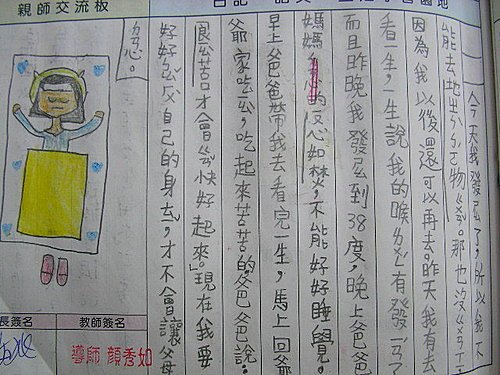 親師交流板
日記
今天我發ㄕㄠ了,所以我不
能去 物 。那也沒ㄍㄨㄢ ㄒㄧ
因為我以後還可以再去。昨天我有去
看一生,一生說我的喉 有發ㄧㄢˊ了
而且昨晚我發ㄕㄠ到38度,晚上爸爸
媽媽 心如焚,不能好好睡覺。
早上爸爸帶我去看完一生,馬上回爺
爺家吃ㄧㄠˋ,吃起來苦苦的,爸爸說:
良ㄧㄠˋ苦口才會 快好起來。」現在我要
好好 自己的身 ,才不會讓父母
ㄉㄢ心。
長簽名
教師簽名
導師 顏秀如